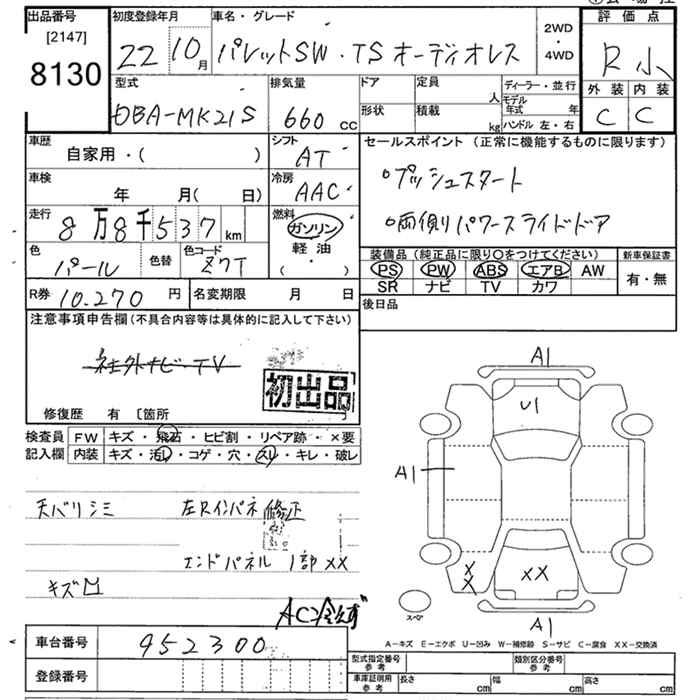 出品番号
[2147]
8130
初度登録年月
22 10月
車名・グレード
パレットSW・TSオーディオレス
2WD
・
4WD
評価点
R 小
外装 内装
C C
型式
DBA-MK21S
排気量
660 cc
ドア
定員
人
形状
積載
kg
ディーラー・並行
モデル年式 年
ハンドル 左・右
車歴
自家用・( )
シフト
AT
車検
年 月( 日)
冷房
AAC
走行
8万8千537 km
燃料
ガソリン
軽油
( ・ )
色
パール
色替
色コード
Z7T
R券 10.270 円
名変期限 月 日
セールスポイント(正常に機能するものに限ります)
○プッシュスタート
○両側リパワースライドドア
装備品(純正品に限り○をつけてください)
PS PW ABS エアB AW
SR ナビ TV カワ
新車保証書
有・無
後日品
注意事項申告欄(不具合内容等は具体的に記入して下さい)
社外ナビ・TV
初出品
修復歴 有 〔箇所
検査員
記入欄
FW キズ・飛石・ヒビ割・リペア跡・×要
内装 キズ・汚レ・コゲ・穴・スレ・キレ・破レ
天バリシミ 左Rインパネ修正
エンドパネル 1部XX
キズ凹
車台番号 952300
登録番号
A1
U1
A1
XX
XX
A1
スペア
A-キズ E-エクボ U-凹み W-補修跡 S-サビ C-腐食 XX-交換済
型式指定番号
参考
類別区分番号
参考
車庫証明用
参考
長さ cm
幅 cm
高さ cm